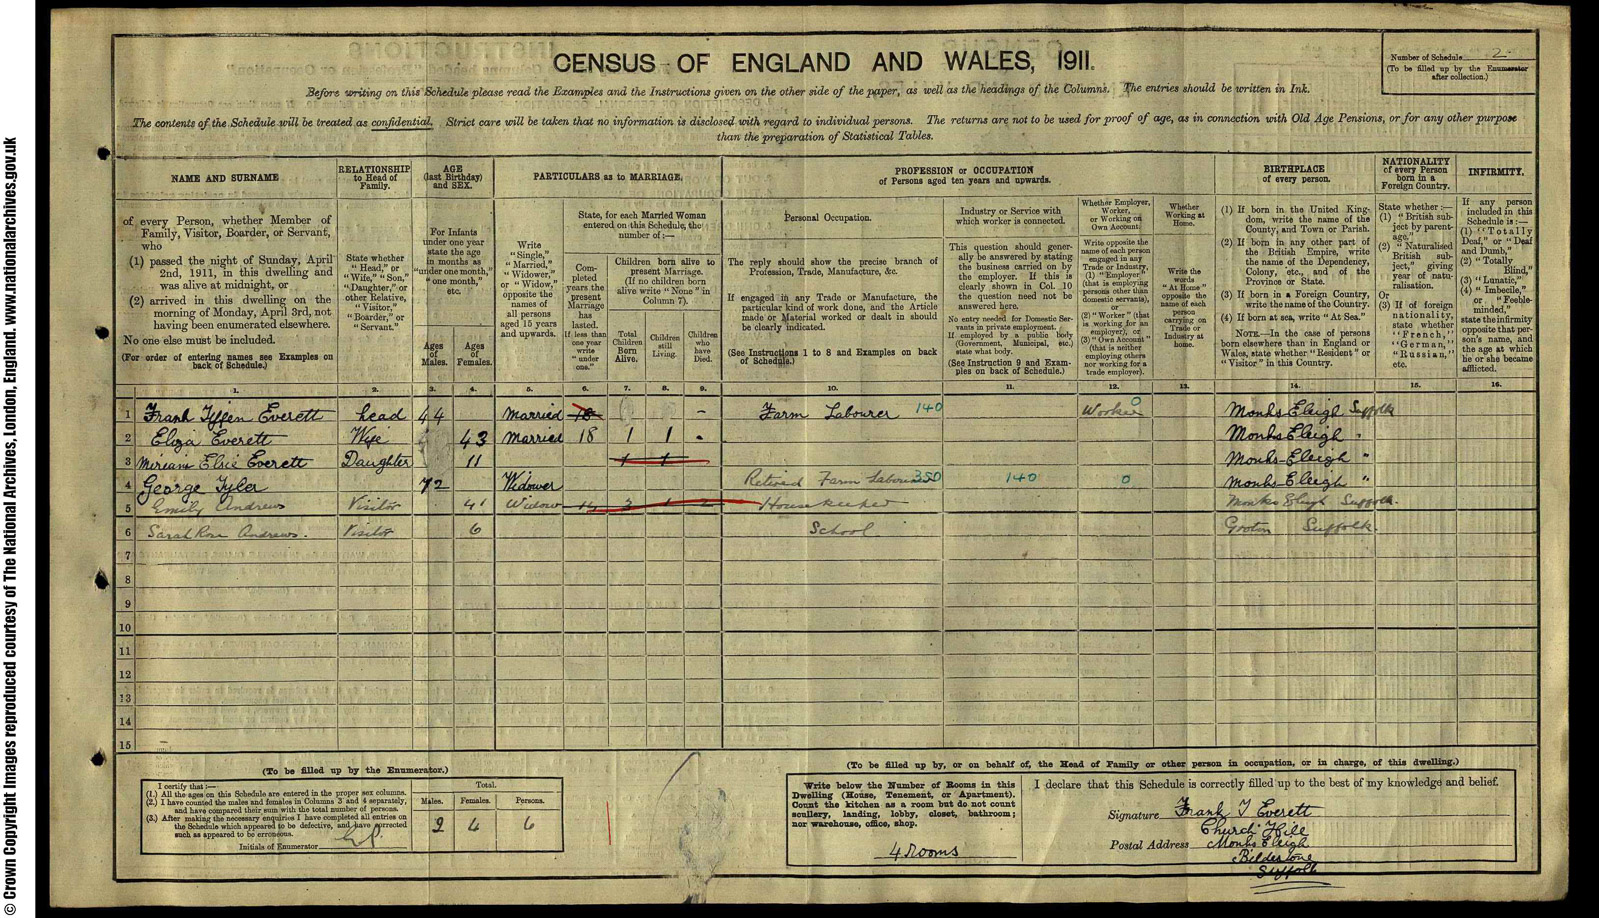 © Crown Copyright Images reproduced courtesy of The National Archives, London, England. www.nationalarchives.gov.uk
CENSUS OF ENGLAND AND WALES, 1911.
Number of Schedule 2
(To be filled up by the Enumerator
after collection.)
Before writing on this Schedule please read the Examples and the Instructions given on the other side of the paper, as well as the headings of the Columns. The entries should be written in Ink.
The contents of the Schedule will be treated as confidential. Strict care will be taken that no information is disclosed with regard to individual persons. The returns are not to be used for proof of age, as in connection with Old Age Pensions, or for any other purpose
than the preparation of Statistical Tables.
NAME AND SURNAME
of every Person, whether Member of
Family, Visitor, Boarder, or Servant,
who
(1) passed the night of Sunday, April
2nd, 1911, in this dwelling and
was alive at midnight, or
(2) arrived in this dwelling on the
morning of Monday, April 3rd, not
having been enumerated elsewhere.
No one else must be included.
(For order of entering names see Examples on
back of Schedule.)
RELATIONSHIP
to Head of
Family.
State whether
"Head," or
"Wife," "Son,"
"Daughter," or
other Relative,
"Visitor,"
"Boarder," or
"Servant."
AGE
(last Birthday)
and SEX.
For Infants
under one year
state the age
in months as
"under one month,"
"one month,"
etc.
Ages
of
Males.
Ages
of
Females.
PARTICULARS as to MARRIAGE.
Write
"Single,"
"Married,"
"Widower,"
or "Widow,"
opposite the
names of
all persons
aged 15 years
and upwards.
State, for each Married Woman
entered on this Schedule, the
number of:—
Completed
years the
present
Marriage
has
lasted.
If less than
one year
write
"under
one."
Children born alive to
present Marriage.
(If no children born
alive write "None" in
Column 7).
Total
Children
Born
Alive.
Children
still
Living.
Children
who
have
Died.
PROFESSION or OCCUPATION
of Persons aged ten years and upwards.
Personal Occupation.
The reply should show the precise branch of
Profession, Trade, Manufacture, &c.
If engaged in any Trade or Manufacture, the
particular kind of work done, and the Article
made or Material worked or dealt in should
be clearly indicated.
(See Instructions 1 to 8 and Examples on back
of Schedule.)
Industry or Service with
which worker is connected.
This question should generally
be answered by stating
the business carried on by
the employer. If this is
clearly shown in Col. 10
the question need not be
answered here.
No entry needed for Domestic Servants
in private employment.
If employed by a public body
(Government, Municipal, etc.)
state what body.
(See Instruction 9 and Examples
on back of Schedule.)
Whether Employer,
Worker,
or Working on
Own Account.
Write opposite the
name of each person
engaged in any
Trade or Industry,
(1) "Employer"
(that is employing
persons other than
domestic servants),
or
(2) "Worker" (that
is working for an
employer), or
(3) "Own Account"
(that is neither
employing others
nor working for a
trade employer).
Whether
Working at
Home.
Write the
words
"At Home"
opposite the
name of each
person
carrying on
Trade or
Industry at
home.
BIRTHPLACE
of every person.
(1) If born in the United Kingdom,
write the name of the
County, and Town or Parish.
(2) If born in any other part of
the British Empire, write
the name of the Dependency,
Colony, etc., and of the
Province or State.
(3) If born in a Foreign Country,
write the name of the Country.
(4) If born at sea, write "At Sea."
NOTE.—In the case of persons
born elsewhere than in England or
Wales, state whether "Resident" or
"Visitor" in this Country.
NATIONALITY
of every Person
born in a
Foreign Country.
State whether:—
(1) "British subject
by parentage,"
(2) "Naturalised
British subject,"
giving
year of naturalisation.
Or
(3) If of foreign
nationality,
state whether
"French,"
"German,"
"Russian,"
etc.
INFIRMITY.
If any person
included in this
Schedule is:—
(1) "Totally
Deaf," or "Deaf
and Dumb,"
(2) "Totally
Blind,"
(3) "Lunatic,"
(4) "Imbecile,"
or "Feeble-minded,"
state the infirmity
opposite that person's
name, and
the age at which
he or she became
afflicted.
1. 2. 3. 4. 5. 6. 7. 8. 9. 10. 11. 12. 13. 14. 15. 16.
1 Frank Tiffen Everett head 44 Married 18 – Farm Labourer 140 Worker 0 Monks Eleigh Suffolk
2 Eliza Everett Wife 43 Married 18 1 1 - Monks Eleigh "
3 Miriam Elsie Everett Daughter 11 1 1 Monks-Eleigh "
4 George Tyler 72 Widower Retired Farm Labourer 350 140 0 Monks Eleigh "
5 Emily Andrews Visitor 41 Widow 14 3 1 2 Housekeeper Monks Eleigh Suffolk
6 Sarah Rose Andrews. Visitor 6 School Groton Suffolk.
7
8
9
10
11
12
13
14
15
(To be filled up by the Enumerator.)
I certify that:—
(1.) All the ages on this Schedule are entered in the proper sex columns.
(2.) I have counted the males and females in Columns 3 and 4 separately,
and have compared their sum with the total number of persons.
(3.) After making the necessary enquiries I have completed all entries on
the Schedule which appeared to be defective, and have corrected
such as appeared to be erroneous.
Initials of Enumerator
Total.
Males. Females. Persons.
2 4 6
(To be filled up by, or on behalf of, the Head of Family or other person in occupation, or in charge, of this dwelling.)
Write below the Number of Rooms in this
Dwelling (House, Tenement, or Apartment).
Count the kitchen as a room but do not count
scullery, landing, lobby, closet, bathroom;
nor warehouse, office, shop.
4 Rooms
I declare that this Schedule is correctly filled up to the best of my knowledge and belief.
Signature Frank T Everett
Church Hill
Postal Address Monks Eleigh
Bildestone
Suffolk